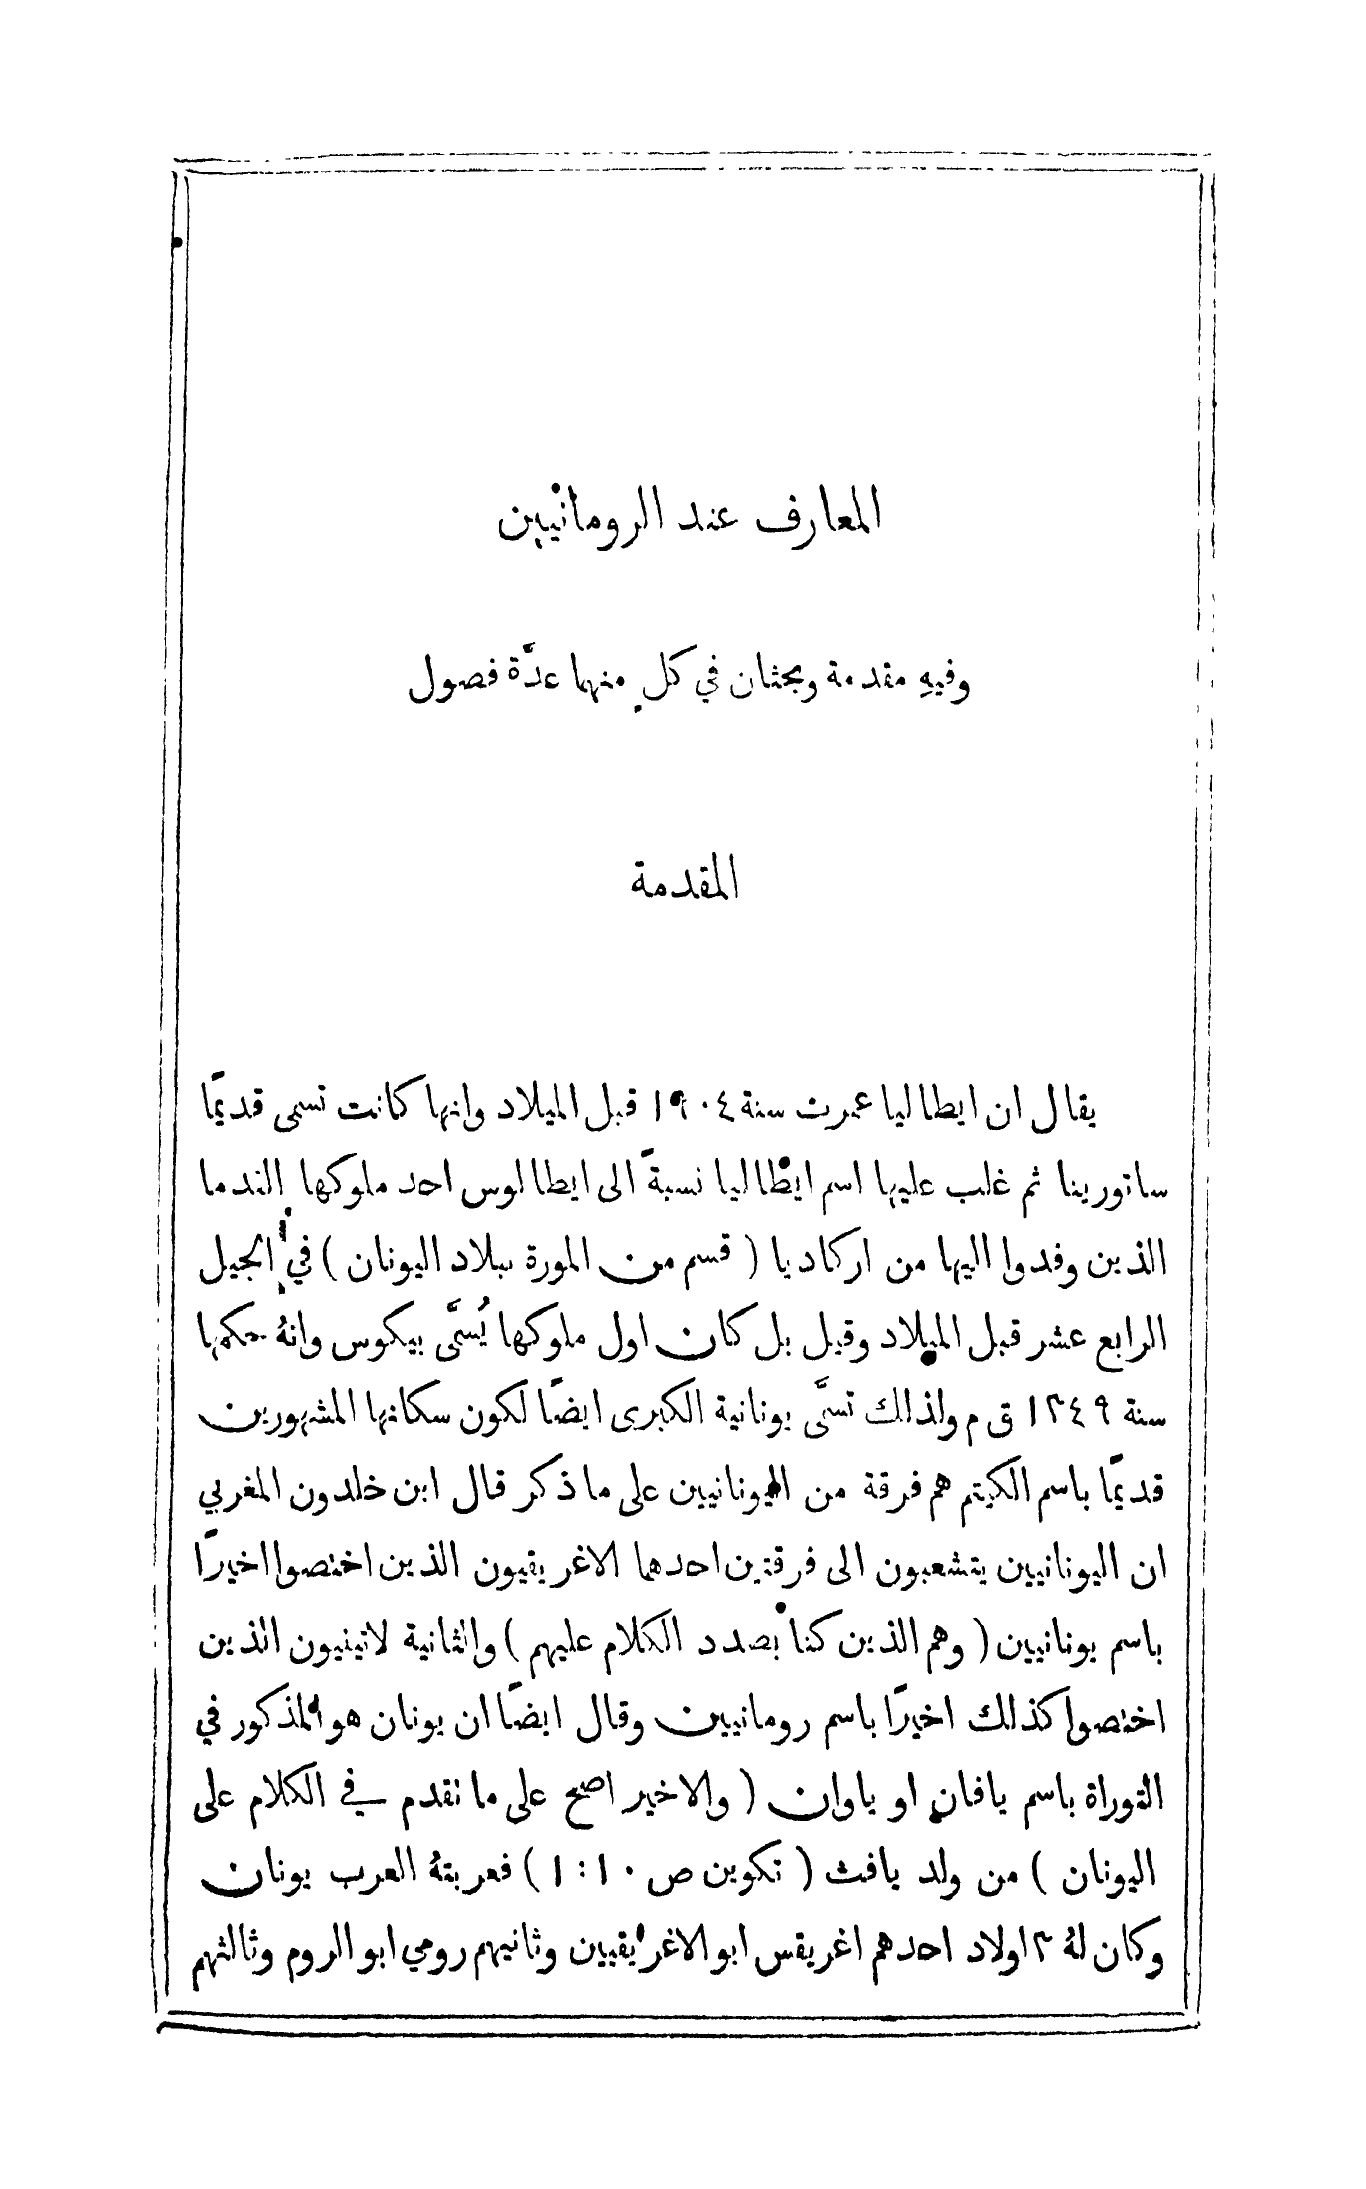 المعارف عند الرومانيين
وفيهِ مقدمة وبحثان في كلٍ منهما عدَّة فصول
المقدمة
يقال ان ايطاليا عمرت سنة ١٩٠٤ قبل الميلاد وانها كانت تسمى قديمًا
ساتورينا ثم غلب عليها اسم ايطاليا نسبةً الى ايطالوس احد ملوكها الندما
الذين وفدوا اليها من اركاديا ( قسم من المورة ببلاد اليونان ) في الجيل
الرابع عشر قبل الميلاد وقيل بل كان اول ملوكها يُسمَّى بيكوس وانهُ حكمها
سنة ١٣٤٩ ق م ولذلك تسمَّى يونانية الكبرى ايضًا لكون سكانها المشهورين
قديمًا باسم الكيتم هم فرقة من اليونانيين على ما ذكر قال ابن خلدون المغربي
ان اليونانيين يتشعبون الى فرقتين احدهما الاغريقيون الذين اختصوا اخيرًا
باسم يونانيين ( وهم الذين كنا بصدد الكلام عليهم ) والثانية لاتينيون الذين
اختصوا كذلك اخيرًا باسم رومانيين وقال ايضًا ان يونان هو المذكور في
التوراة باسم يافان او ياوان ( والاخير اصح على ما تقدم في الكلام على
اليونان ) من ولد يافث ( تكوين ص ١٠ : ١ ) فعربتهُ العرب يونان
وكان لهُ ٣ اولاد احدهم اغريقس ابو الاغريقيين وثانيهم رومي ابو الروم وثالثهم